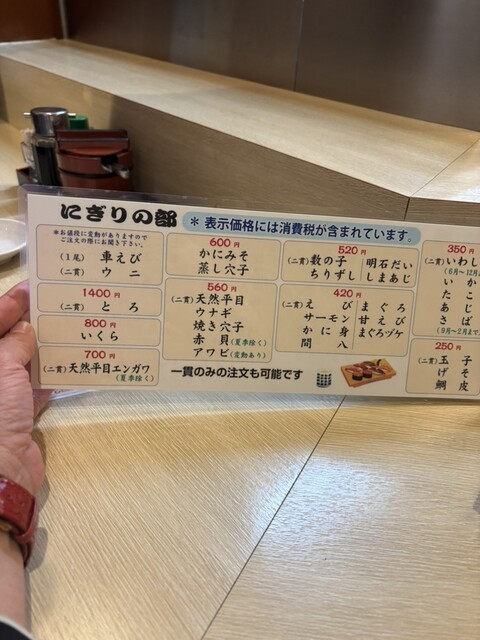 にぎりの部
＊表示価格には消費税が含まれています。
＊お値段に変動がありますので
ご注文の際にお聞き下さい。
(1尾) 車えび
(二貫) ウニ
1400円
(二貫) とろ
800円
いくら
700円
(二貫) 天然平目エンガワ
(夏季除く)
600円
かにみそ
蒸し穴子
560円
(二貫) 天然平目
ウナギ
焼き穴子
赤貝(夏季除く)
アワビ(変動あり)
520円
(二貫) 数の子 明石だい
ちりずし しまあじ
420円
(二貫) えび まぐろ
サーモン 甘えび
かに身 まぐろヅケ
間八
350円
(二貫) いわし
(6月〜12月
いか
たこ
あじ
さば
(9月〜2月まで
250円
(二貫) 玉子
げそ
鯛皮
一貫のみの注文も可能です